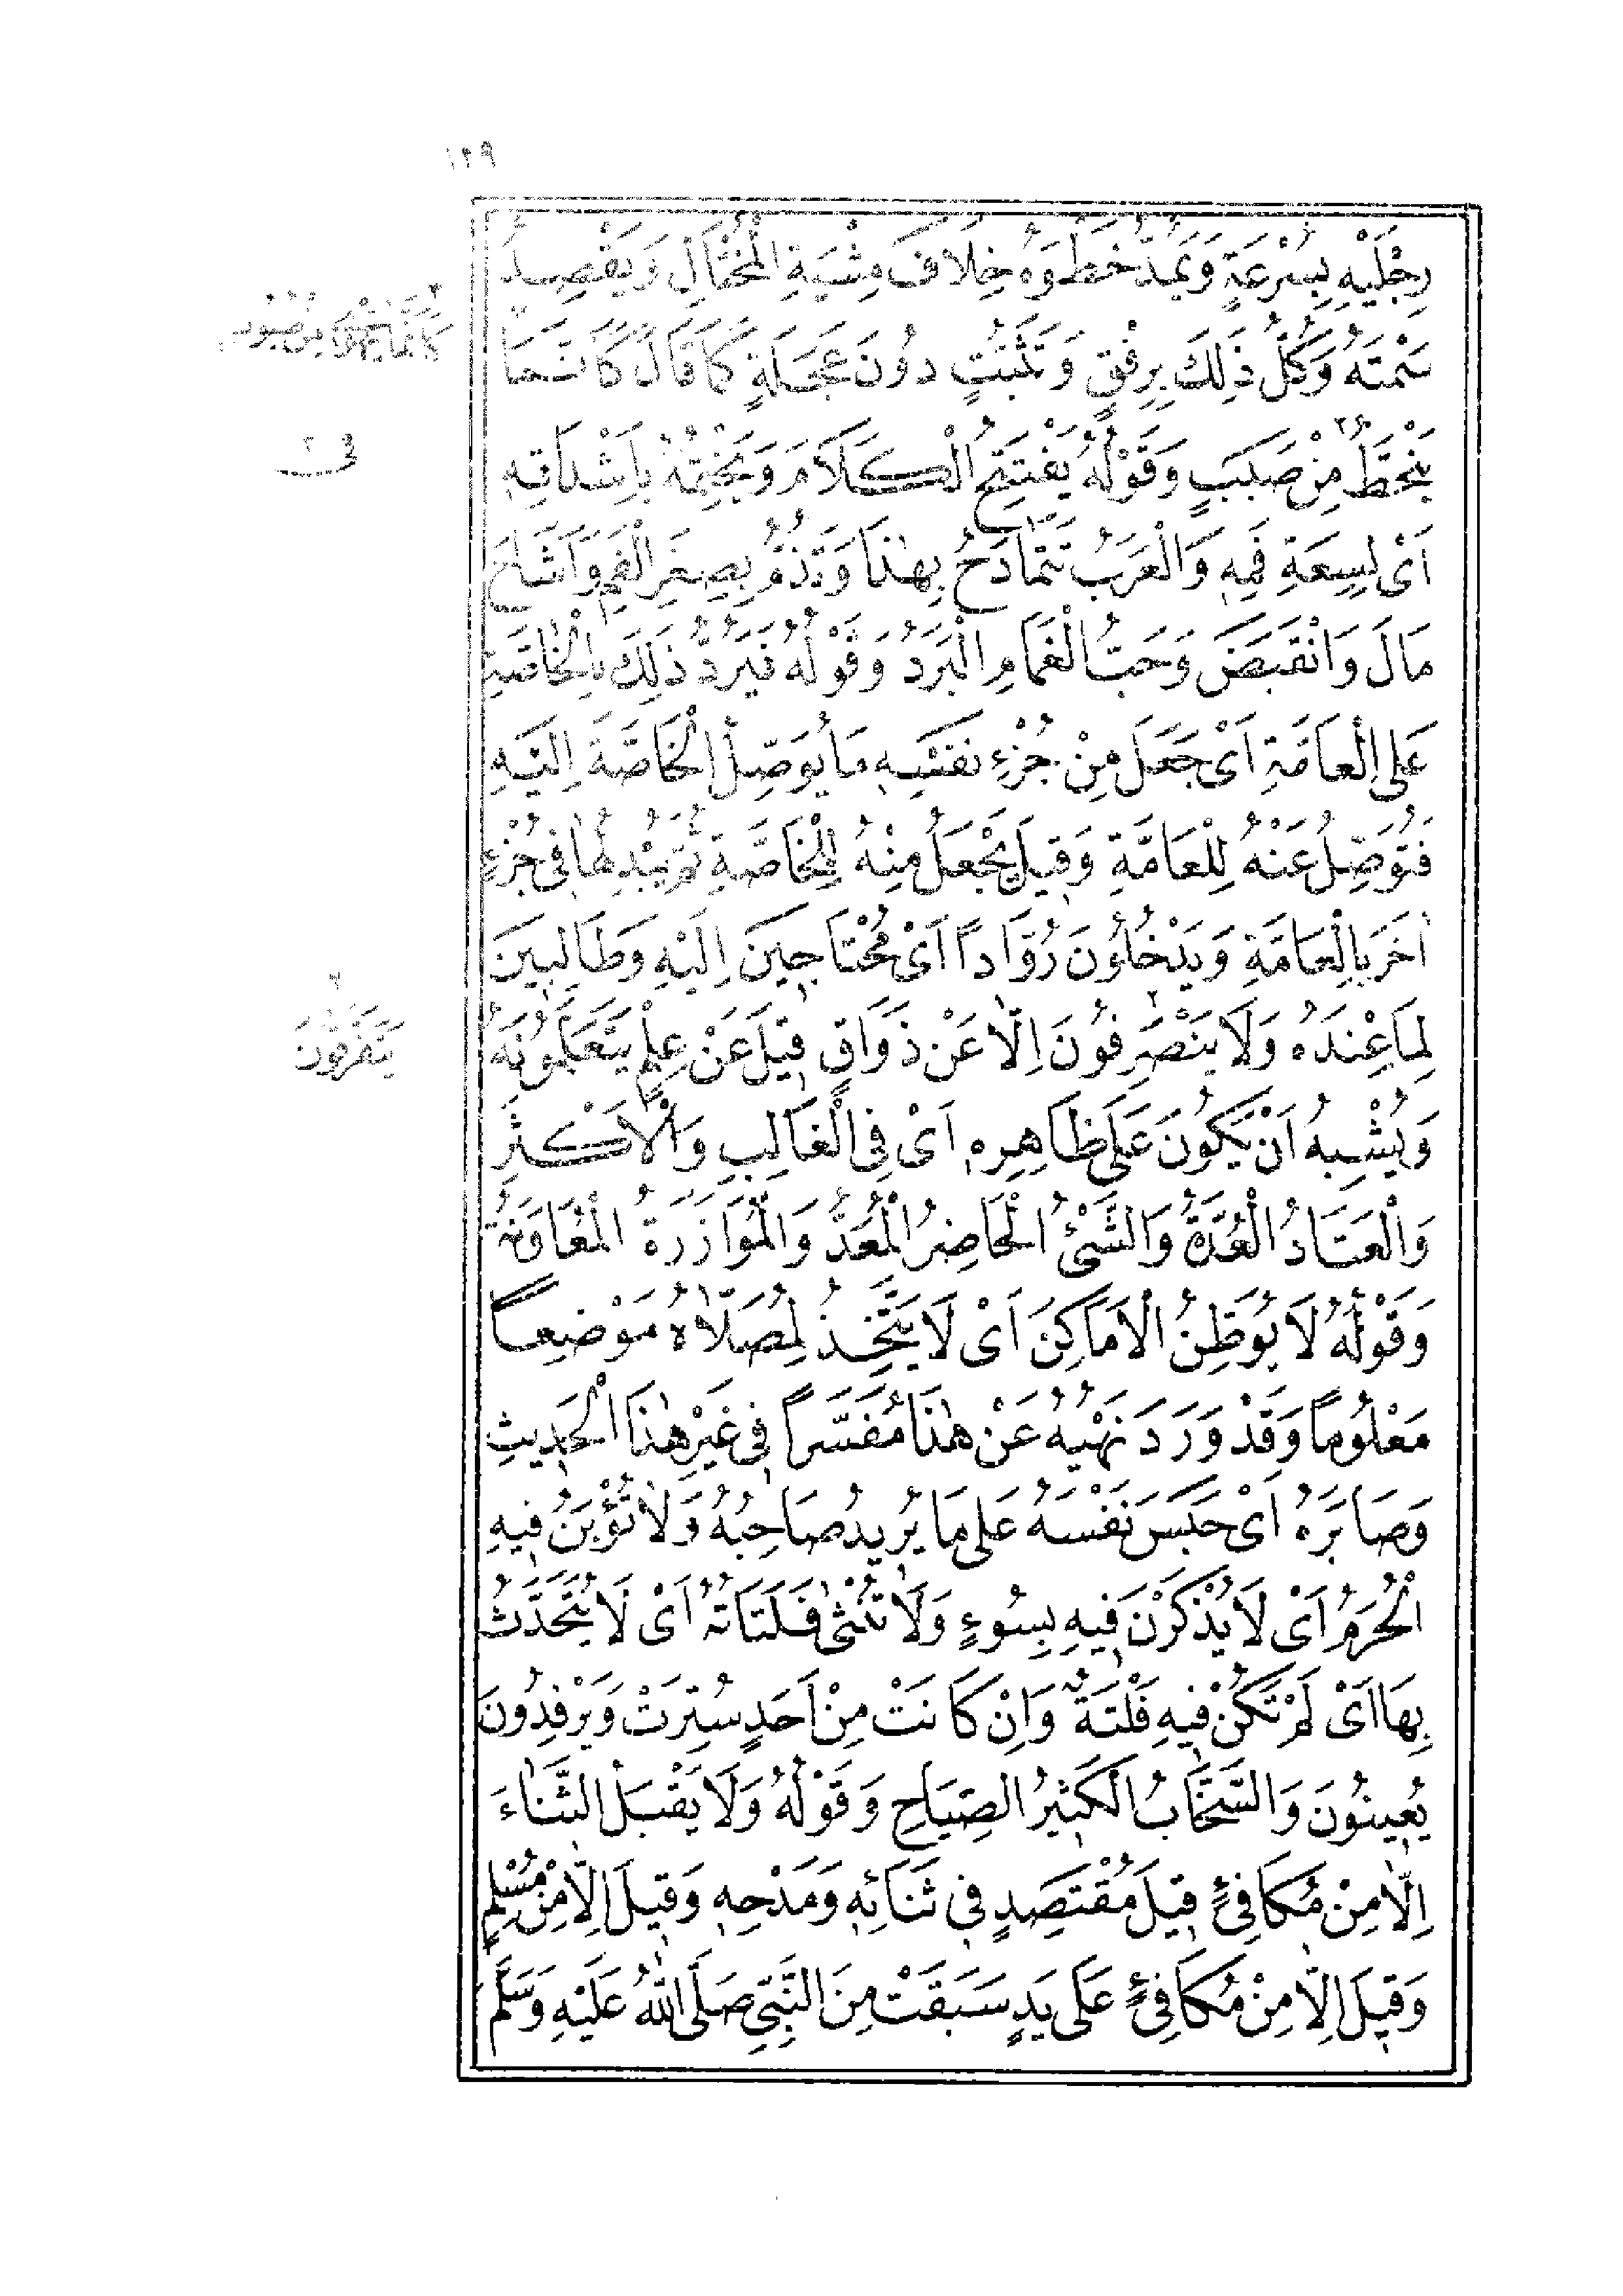 ١٢٩
رِجْلَيْهِ بِسُرْعَةٍ وَيَمُدُّ خَطْوَهُ خِلَافَ مِشْيَةِ الْمُخْتَالِ وَيَقْصِدُ
سَمْتَهُ وَكُلُّ ذٰلِكَ بِرِفْقٍ وَتَثَبُّتٍ دُونَ عَجَلَةٍ كَمَا قَالَ كَاَنَّمَا
يَنْحَطُّ مِنْ صَبَبٍ وَقَوْلُهُ يَفْتَتِحُ الْكَلَامَ وَيَخْتِمُهُ بِاَشْدَاقِهِ
اَىْ لِسِعَةِ فَمِهِ وَالْعَرَبُ تَتَمَادَحُ بِهٰذَا وَتَذُمُّ بِصِغَرِ الْفَمِ وَاَشَاحَ
مَالَ وَانْقَبَضَ وَحَبُّ الْغَمَامِ الْبَرَدُ وَقَوْلُهُ فَيَرُدُّ ذٰلِكَ بِالْخَاصَّةِ
عَلَى الْعَامَّةِ اَىْ جَعَلَ مِنْ جُزْءِ نَفْسِهِ مَا يُوَصِّلُ الْخَاصَّةَ اِلَيْهِ
فَتُوَصِّلُ عَنْهُ لِلْعَامَّةِ وَقِيلَ يَجْعَلُ مِنْهُ لِلْخَاصَّةِ ثُمَّ يُبْدِلُهَا فِى جُزْءٍ
اٰخَرَ بِالْعَامَّةِ وَيَدْخُلُونَ رُوَّادًا اَىْ مُحْتَاجِينَ اِلَيْهِ وَطَالِبِينَ
لِمَا عِنْدَهُ وَلَا يَنْصَرِفُونَ اِلَّا عَنْ ذَوَاقٍ قِيلَ عَنْ عِلْمٍ يَتَعَلَّمُونَهُ
وَيُشْبِهُ اَنْ يَكُونَ عَلَى ظَاهِرِهِ اَىْ فِى الْغَالِبِ وَالْاَكْثَرِ
وَالْعَتَادُ الْعُدَّةُ وَالشَّىْءُ الْحَاضِرُ الْمُعَدُّ وَالْمُوَازَرَةُ الْمُعَاوَنَةُ
وَقَوْلُهُ لَا يُوَطِّنُ الْاَمَاكِنَ اَىْ لَا يَتَّخِذُ لِمُصَلَّاهُ مَوْضِعًا
مَعْلُومًا وَقَدْ وَرَدَ نَهْيُهُ عَنْ هٰذَا مُفَسَّرًا فِى غَيْرِ هٰذَا الْحَدِيثِ
وَصَابَرَهُ اَىْ حَبَسَ نَفْسَهُ عَلَى مَا يُرِيدُ صَاحِبُهُ وَلَا تُؤْبَنُ فِيهِ
الْحُرَمُ اَىْ لَا يُذْكَرْنَ فِيهِ بِسُوءٍ وَلَا تُنْثٰى فَلَتَاتُهُ اَىْ لَا يُتَحَدَّثُ
بِهَا اَىْ لَمْ تَكُنْ فِيهِ فَلْتَةٌ وَاِنْ كَانَتْ مِنْ اَحَدٍ سُتِرَتْ وَيَرْفِدُونَ
يُعِينُونَ وَالسَّخَّابُ الْكَثِيرُ الصِّيَاحِ وَقَوْلُهُ وَلَا يَقْبَلُ الثَّنَاءَ
اِلَّا مِنْ مُكَافِئٍ قِيلَ مُقْتَصِدٍ فِى ثَنَائِهِ وَمَدْحِهِ وَقِيلَ اِلَّا مِنْ مُسْلِمٍ
وَقِيلَ اِلَّا مِنْ مُكَافِئٍ عَلَى يَدٍ سَبَقَتْ مِنَ النَّبِىِّ صَلَّى اللهُ عَلَيْهِ وَسَلَّمَ
يَتَفَرَّقُونَ